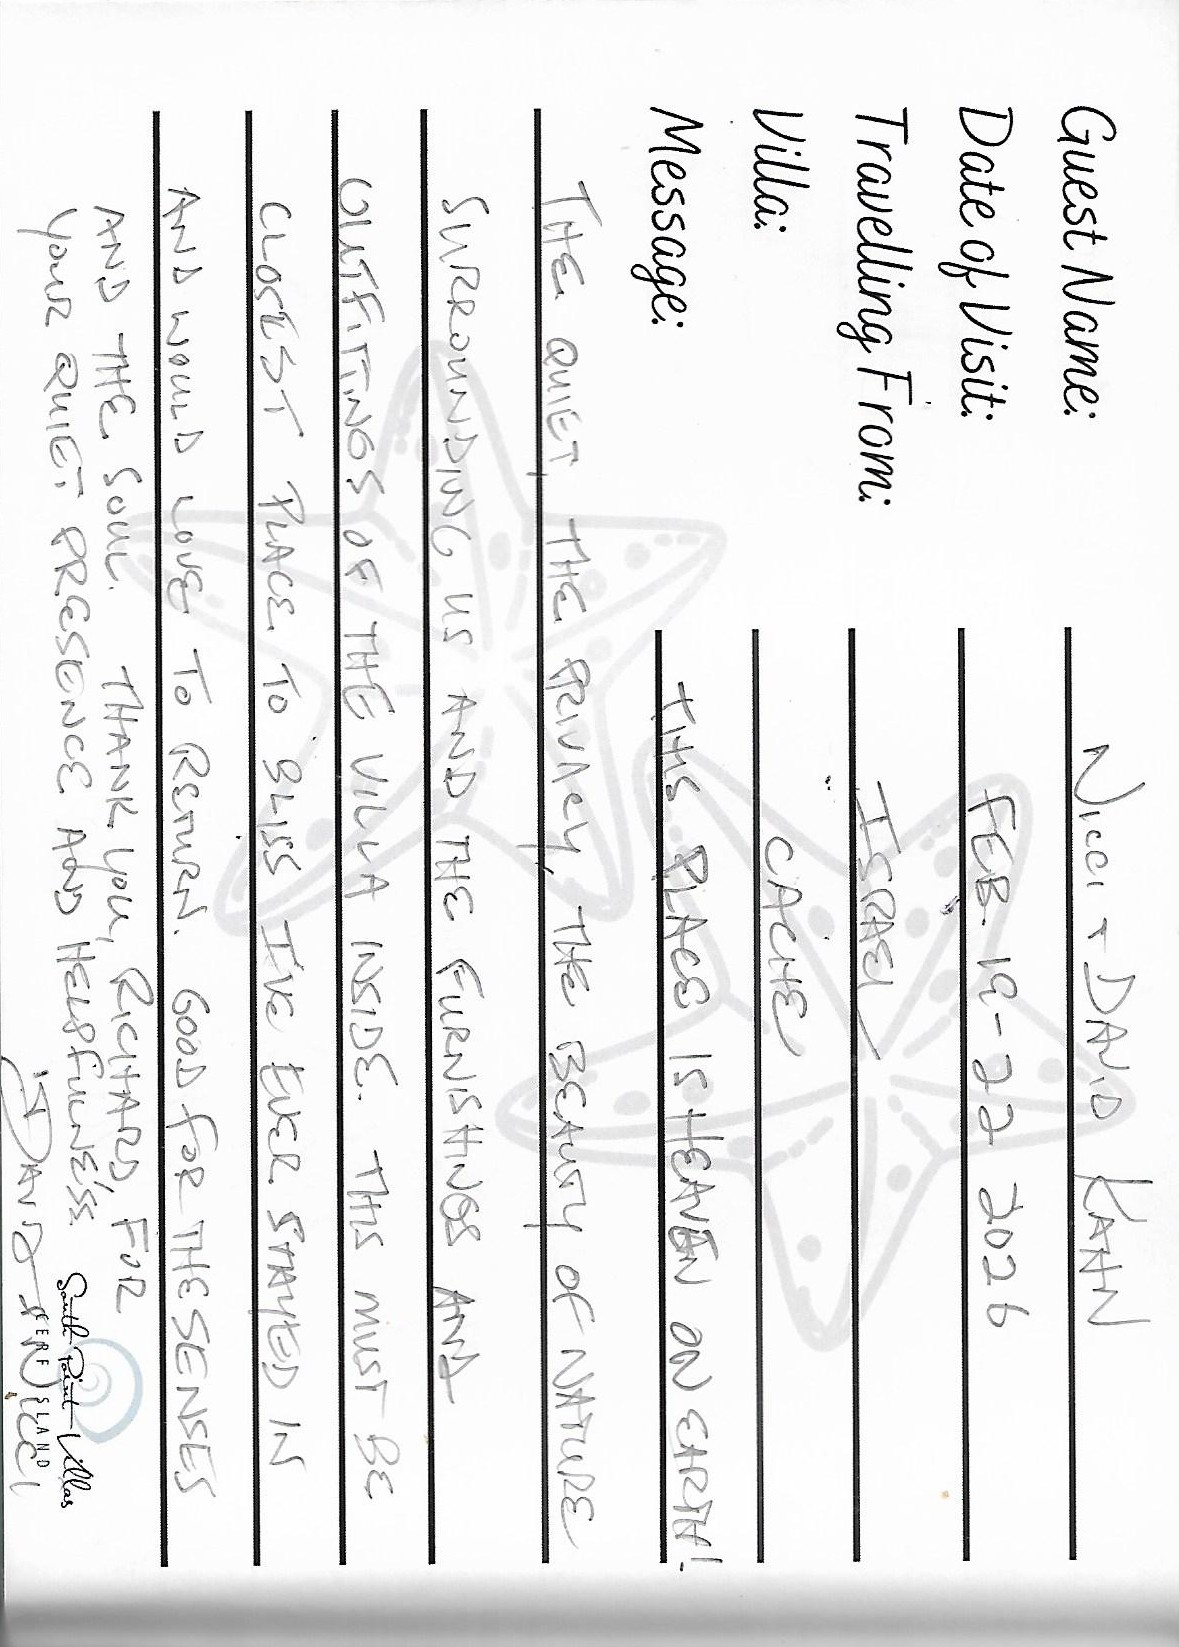 Guest Name: Nicci + David Kahn
Date of Visit: Feb. 19-22 2026
Travelling From: Israel
Villa: Cachée
Message: This place is heaven on earth!
The quiet, the privacy, the beauty of nature
surrounding us and the furnishings and
outfittings of the villa inside. This must be
closest place to bliss I've ever stayed in
and would love to return. Good for the senses
and the soul. Thank you, Richard, for
your quiet presence and helpfulness.
David + Nicci
South Point Villas
CERF ISLAND